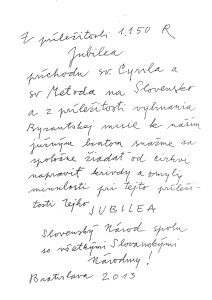 Z príležitosti 1.150 R
Jubilea
príchodu sv Cyrila a
sv Metoda na Slovensko
a z príležitosti vyhnania
Byzantskej misie k našim
južným bratom snažme sa
spoločne žiadať od cirkvi
napraviť krivdy a omyly
minulosti pri tejto príleži-
tosti tejto
JUBILEA
Slovenský Národ spolu
so všetkými Slovanskými
Národmy!
Bratislava 2013